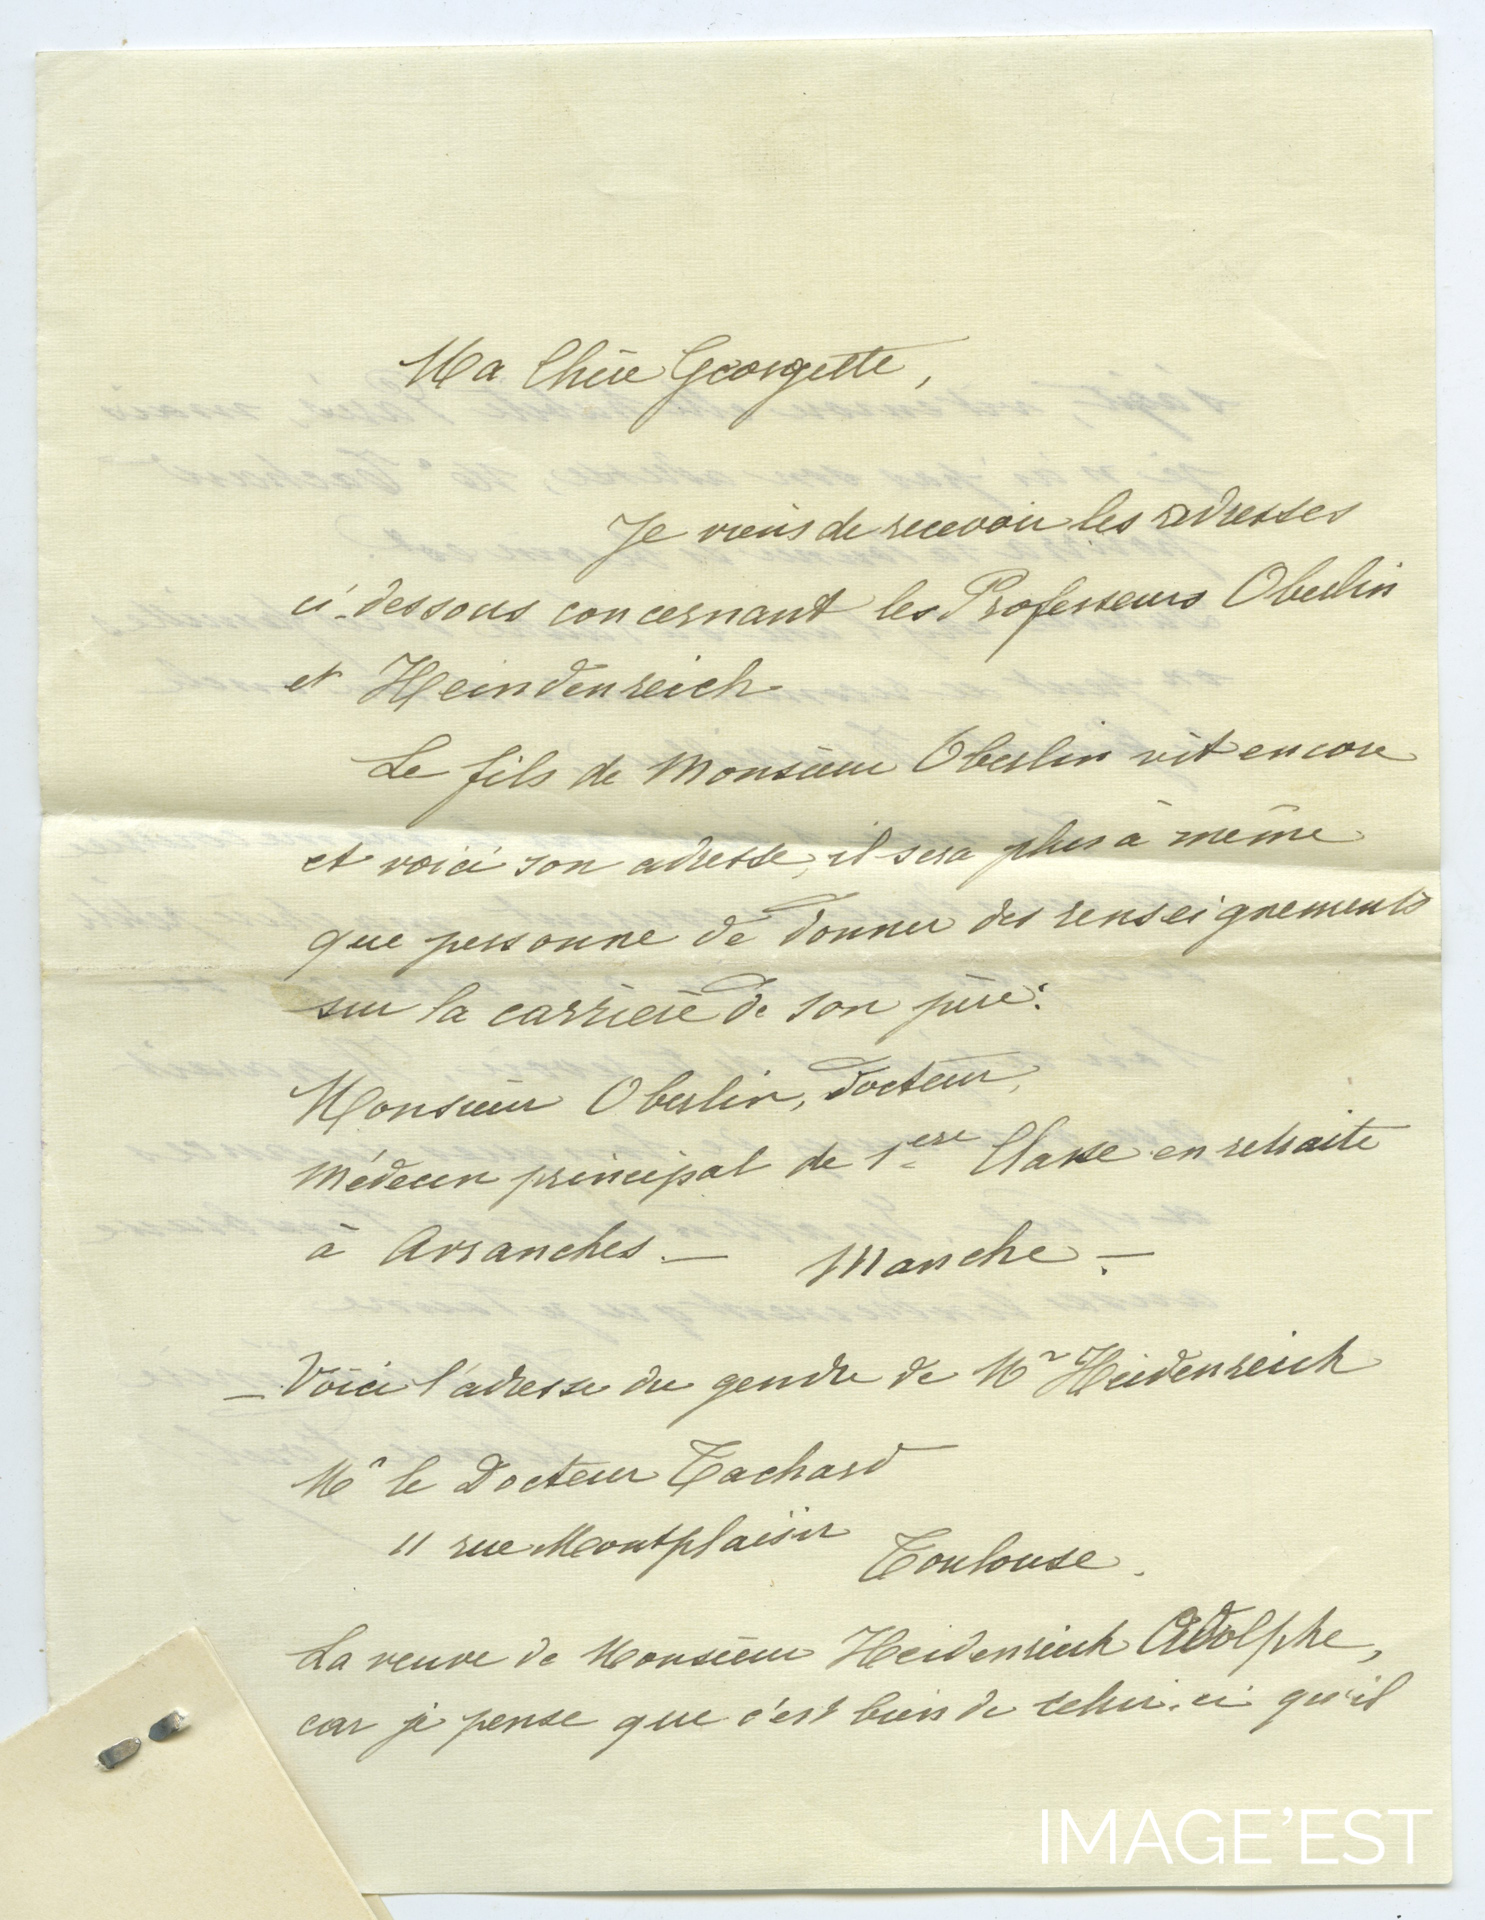 Ma Chère Georgette,
Je viens de recevoir les adresses
ci-dessous concernant les Professeurs Oberlin
et Heindenreich
Le fils de Monsieur Oberlin vit encore
et voici son adresse, il sera plus à même
que personne de donner des renseignements
sur la carrière de son père:
Monsieur Oberlin, docteur,
Médecin principal de 1ere Classe en retraite
à Avranches. — Manche. —
— Voici l'adresse du gendre de Mr Heidenreich
Mr le Docteur Tachard
11 rue Montplaisir Toulouse.
La veuve de Monsieur Heidenreich Adolphe,
car je pense que c'est bien de celui-ci qu'il
IMAGE'EST